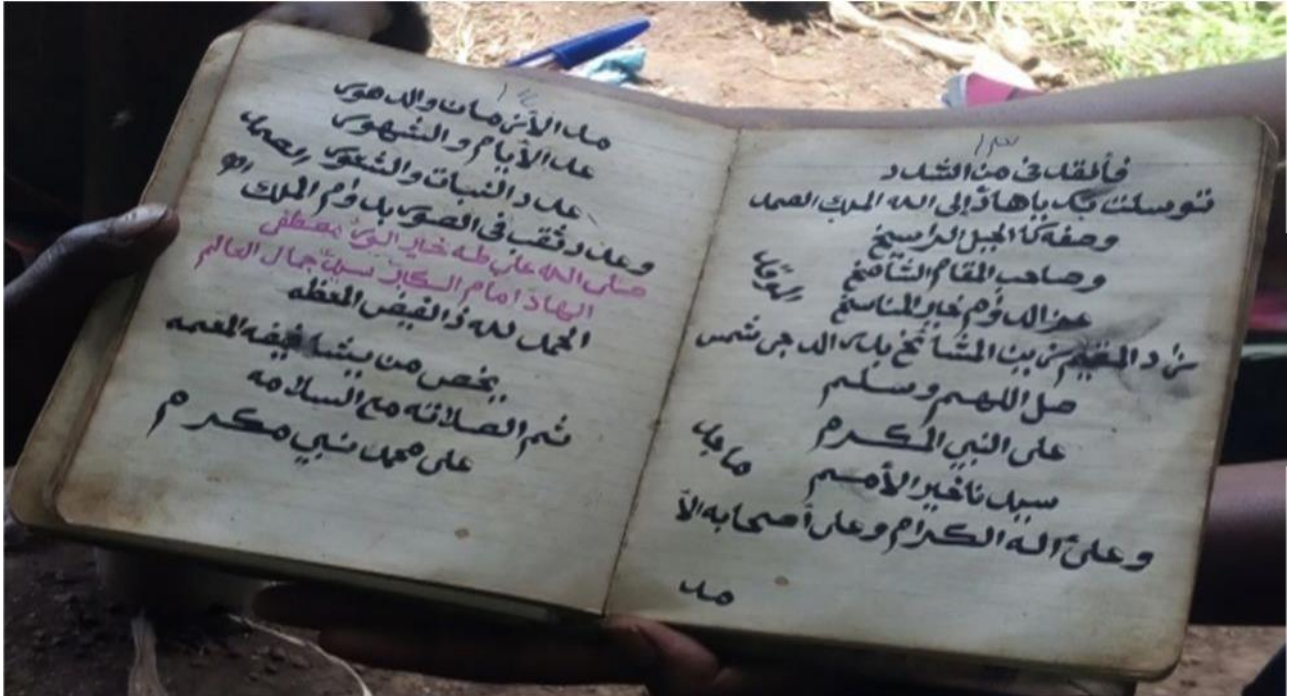 ١٣
فألقد في من الشدد
توسلت بكم ياهاذ إلى الله الملك الصمد
وصفه كا الجبل الراسيخ
وصاحب المقام الشامخ
عزالدوم خير المناسخ
زاد المقيم بن المشائخ بدر الدجى شمس
صل اللهم وسلم
على النبي المكرم
سيدنا خير الأمم
وعلى آله الكرام وعلى أصحابه الأ
مد
مد الأزمان والدهور
عد الأيام والشهور
عدد النبات والشعور
وعدد ثقب في الصور بدوام الملك
صلى الله على طه خاير النبي مصطفى
الهاد امام السكابر سيد جمال العالم
الحمد لله ذ الفيض العظه
يخص من يشا فيفه المعمه
ثم الصلاته مع السلامه
على محمد نبي مكرم